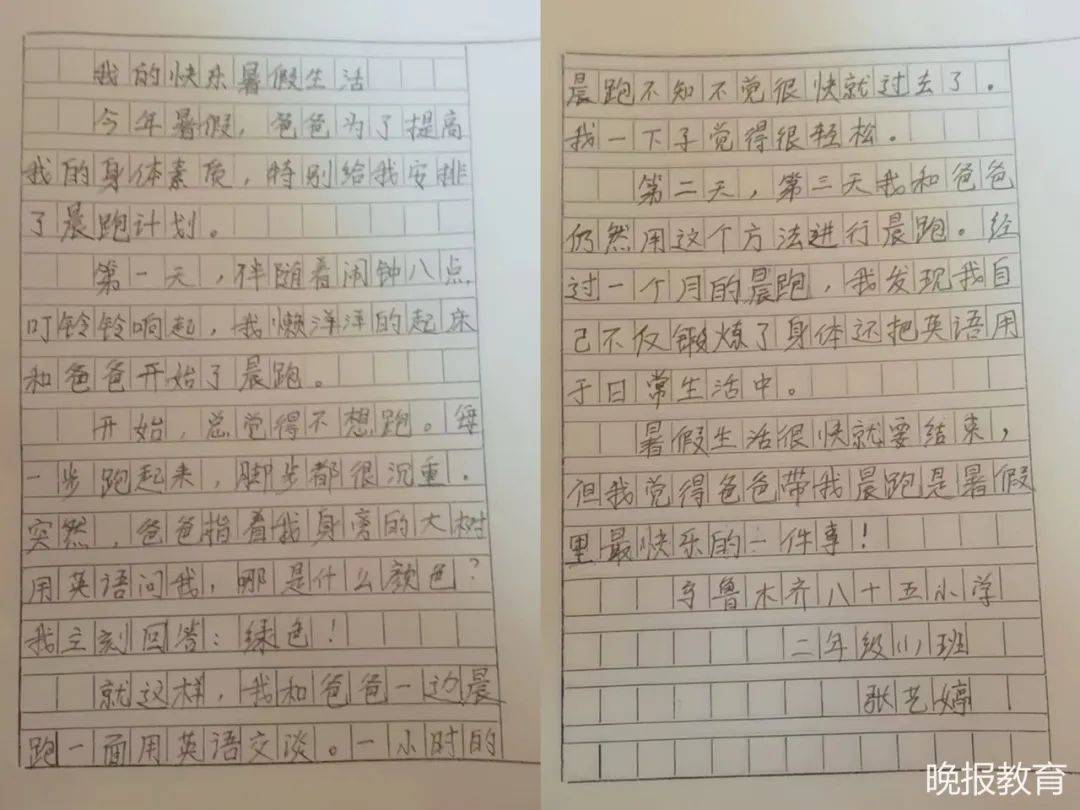 我的快乐暑假生活
今年暑假，爸爸为了提高
我的身体素质，特别给我安排
了晨跑计划。
第一天，伴随着闹钟八点
叮铃铃响起，我懒洋洋的起床
和爸爸开始了晨跑。
开始，总觉得不想跑。每
一步跑起来，脚步都很沉重。
突然，爸爸指着我身旁的大树
用英语问我，哪是什么颜色？
我立刻回答：绿色！
就这样，我和爸爸一边晨
跑一面用英语交谈。一小时的
晨跑不知不觉很快就过去了。
我一下子觉得很轻松。
第二天，第三天我和爸爸
仍然用这个方法进行晨跑。经
过一个月的晨跑，我发现我自
己不仅锻炼了身体还把英语用
于日常生活中。
暑假生活很快就要结束，
但我觉得爸爸带我晨跑是暑假
里最快乐的一件事！
乌鲁木齐八十五小学
二年级(1)班
张艺婷
晚报教育